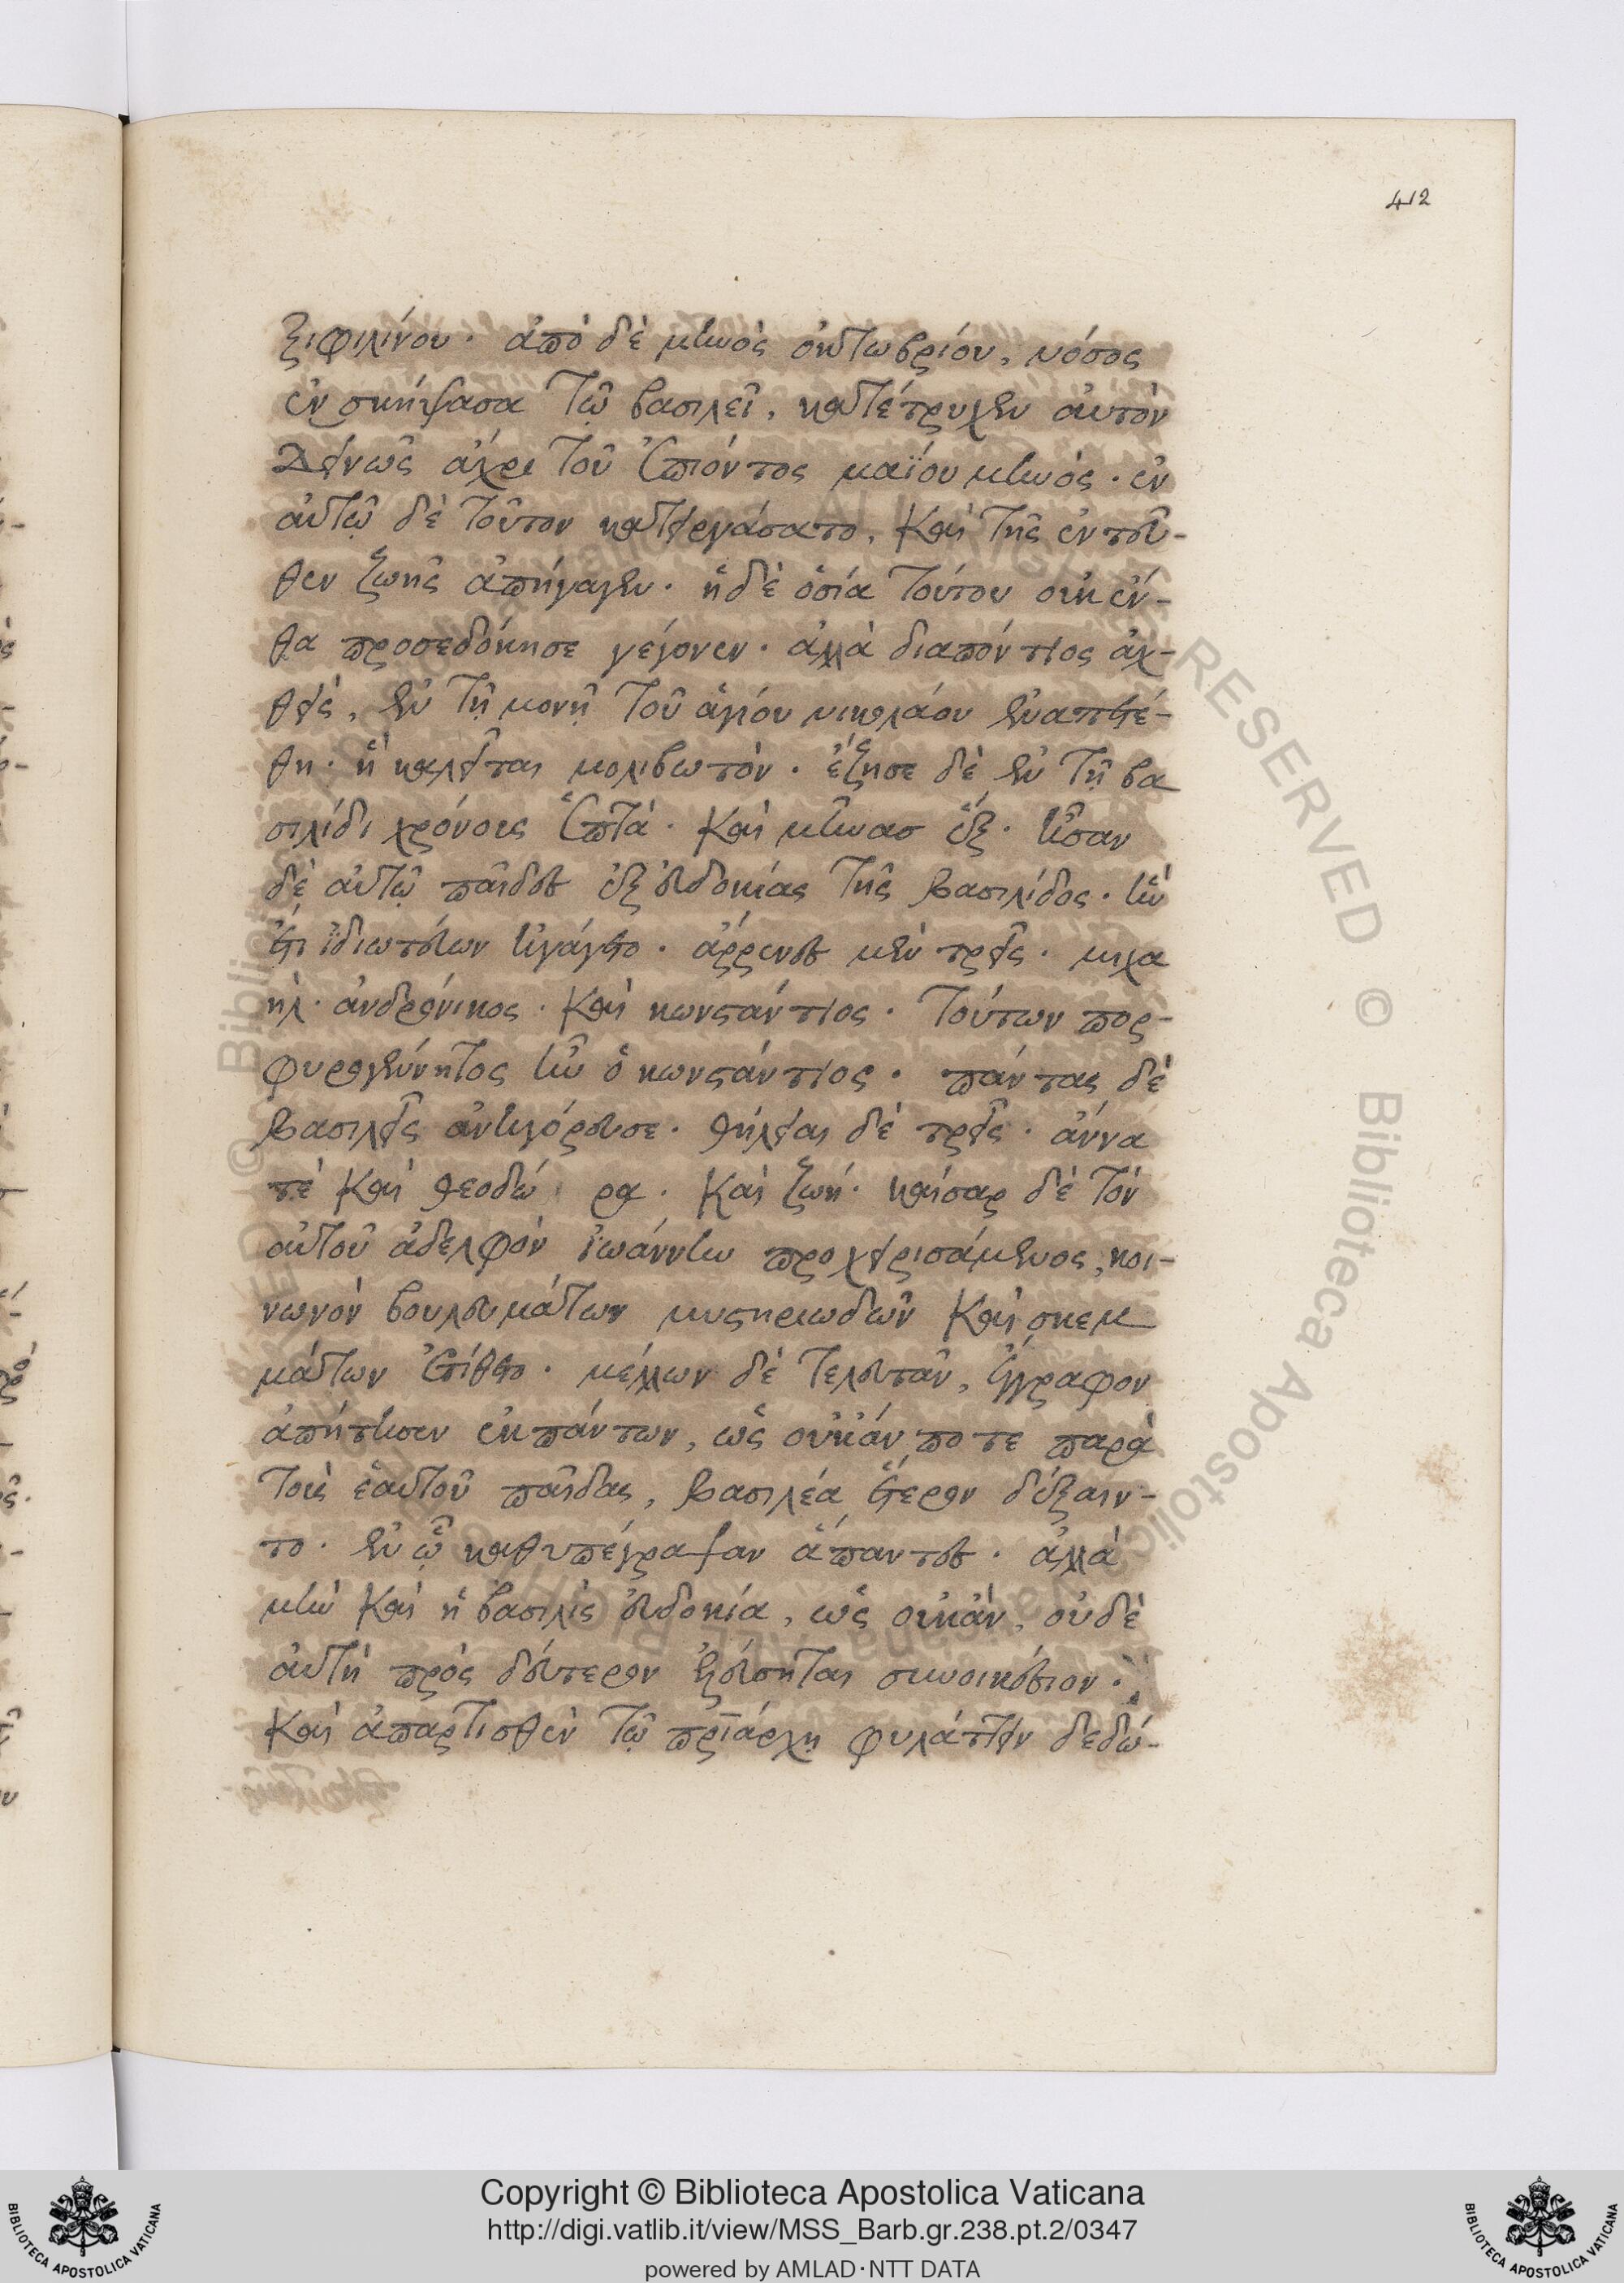 412
ξιφιλίνου· ἀπὸ δὲ μηνὸς ὀκτωβρίου, νόσος
ἐν σκήψασα τῷ βασιλεῖ, κατέτρυχεν αὐτὸν
δεινῶς ἄχρι τοῦ ἐπιόντος μαΐου μηνός· ἐν
αὐτῷ δὲ τοῦτον κατειργάσατο, καὶ τῆς ἐντεῦ-
θεν ζωῆς ἀπήγαγεν· ἡ δὲ ὁσία τούτου οὐκ ἔν-
θα προσεδόκησε γέγονεν· ἀλλὰ διαπόντιος ἀχ-
θεὶς, ἐν τῇ μονῇ τοῦ ἁγίου νικολάου ἐναπετέ-
θη· ἣ καλεῖται μολιβωτόν· ἔζησε δὲ ἐν τῇ βα
σιλίδι χρόνοις ἑπτὰ· καὶ μῆνας ἕξ· ἦσαν
δὲ αὐτῷ παῖδες ἐξ εὐδοκίας τῆς βασιλίδος· ἣν
ἔτι ἰδιωτεύων ἠγάγετο· ἄρρενες μὲν τρεῖς· μιχα
ὴλ· ἀνδρόνικος· καὶ κωνστάντιος· τούτων πορ-
φυρογέννητος ἦν ὁ κωνστάντιος· πάντας δὲ
βασιλεῖς ἀνηγόρευσε· θήλειαι δὲ τρεῖς· ἄννα
τὲ καὶ θεοδώ ρα· καὶ ζωή· καίσαρ δὲ τὸν
αὐτοῦ ἀδελφὸν ἰωάννην προχειρισάμενος, κοι-
νωνὸν βουλευμάτων μυστηριωδῶν καὶ σκεμ
μάτων ἐτίθετο· μέλλων δὲ τελευτᾶν, ἔγγραφον
ἀπῄτησεν ἐκ πάντων, ὡς οὐκ ἄν ποτε παρὰ
τοὺς ἑαυτοῦ παῖδας, βασιλέα ἕτερον δέξαιν-
το· ἐν ᾧ καθυπέγραψαν ἅπαντες· ἀλλὰ
μὴν καὶ ἡ βασιλὶς εὐδοκία, ὡς οὐκ ἂν, οὐδὲ
αὐτὴ πρὸς δεύτερον συνοικέσιον·
καὶ ἀπαρτισθὲν τῷ πριάρχῃ φυλάττειν δεδώ-
Copyright © Biblioteca Apostolica Vaticana
http://digi.vatlib.it/view/MSS_Barb.gr.238.pt.2/0347
powered by AMLAD·NTT DATA
BIBLIOTECA APOSTOLICA VATICANA
BIBLIOTECA APOSTOLICA VATICANA